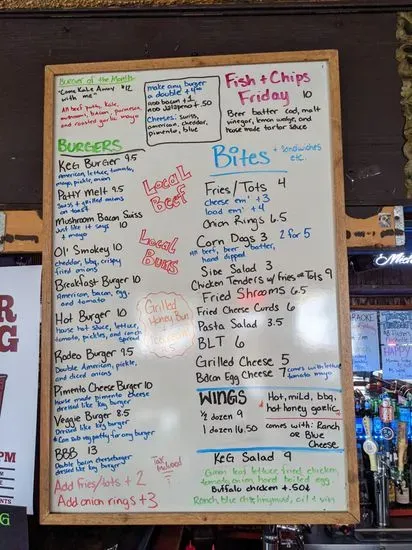 Burger of the Month
"Come Kale Away $12
with me"
All beef patty, kale,
mushrooms, bacon, parmesan,
and roasted garlic mayo
make any burger
a double +4.00
add bacon +1
add Jalapeño +.50
Cheeses: swiss,
american, cheddar,
pimento, blue
Fish + Chips
Friday 10
Beer batter cod, malt
vinegar, lemon wedge, and
house made tartar sauce
BURGERS
KEG Burger 9.5
American, lettuce, tomato,
mayo, pickle, onion
Patty Melt 9.5
Swiss + grilled onions
on toast
Mushroom Bacon Swiss
Just like it says 10
+ mayo
Ol' Smokey 10
cheddar, bbq, crispy
fried onions
Breakfast Burger 10
American, bacon, egg,
and tomato
Hot Burger 10
house hot sauce, lettuce,
tomato, pickles, and
spread
Rodeo Burger 9.5
Double American, pickle,
and diced onions
Pimento Cheese Burger 10
House made pimento cheese
dressed like Keg burger
Veggie Burger 8.5
Dressed like Keg burger
* Can sub veg patty for any burger
BBB 13
Double bacon cheeseburger
dressed like big burger
Add fries/tots + 2
Add onion rings +3
Local
Beef
Local
Buns
Grilled
Honey Bun
Tax
Included
Bites + Sandwiches
etc.
Fries/Tots 4
cheese em' +3
load em' +4
Onion Rings 6.5
Corn Dogs 3 2 for 5
All beef, beer batter,
hand dipped
Side Salad 3
Chicken Tenders w/ fries or tots 9
Fried Shrooms 6.5
Fried Cheese Curds 6
Pasta Salad 3.5
BLT 6
Grilled Cheese 5
Bacon Egg Cheese 7 comes with lettuce
tomato mayo
WINGS
Hot, mild, bbq,
hot honey garlic
½ dozen 9
1 dozen 16.50
comes with: Ranch
or Blue
Cheese
KEG Salad 9
lettuce fried chicken
tomato onion hard boiled egg
Buffalo chicken +.50¢
Ranch blue chz